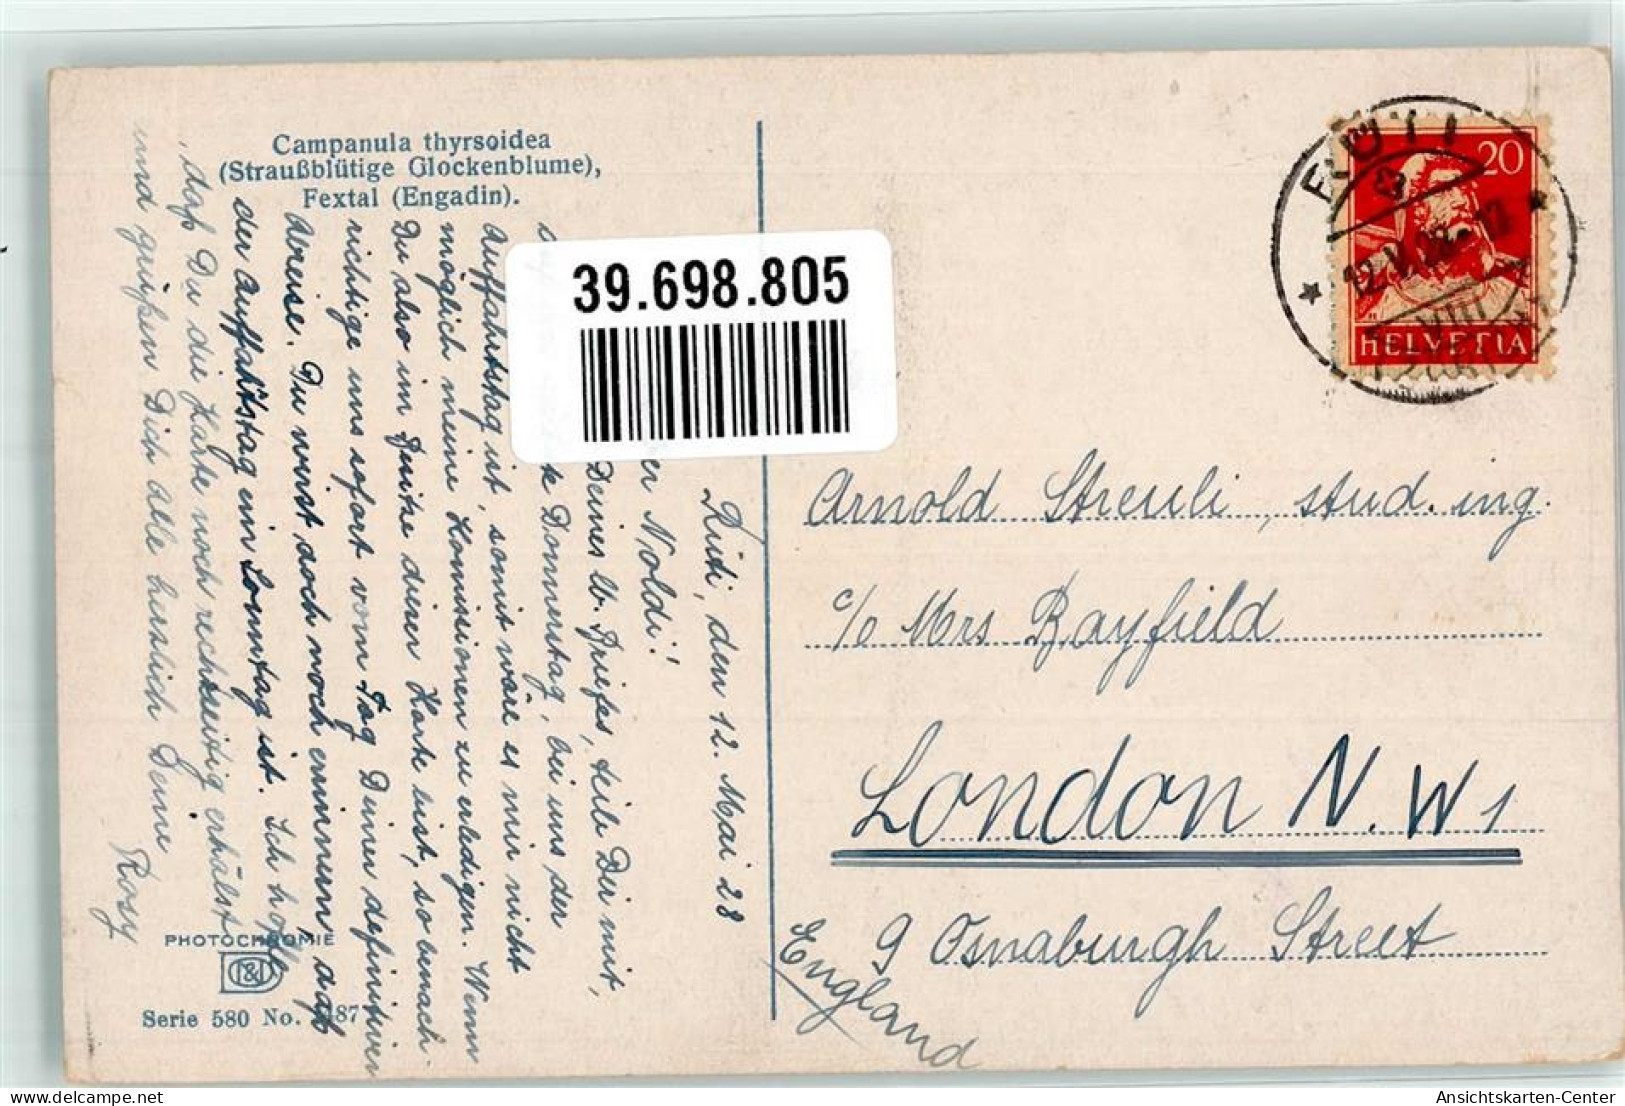 Campanula thyrsoidea
(Straußblütige Glockenblume),
Fextal (Engadin).
39.698.805
Rüti, den 12. Mai 28
Noldi!
Deines lb. Briefes, teile Dir mit,
Donnerstag, bei uns der
Auffahrtstag ist, somit wäre es mir nicht
möglich meine Komissionen zu erledigen. Wenn
Du also im Besitze dieser Karte bist, so benach-
richtige uns sofort vom Tag Deiner definitiven
Abreise. Du wirst doch noch erinnern, daß
der Auffahrtstag ein Sonntag ist. Ich hoffe
, daß Du die Karte noch rechtzeitig erhälst
und grüßen Dich alle herzlich Deine
Rosy
PHOTOCHROMIE
Serie 580 No. 487
20
HELVETIA
RÜTI
12.V.28.
Arnold Streuli, stud. ing.
c/o Mrs Bayfield
London N.W 1
9 Osnaburgh Street
England
Ansichtskarten-Center